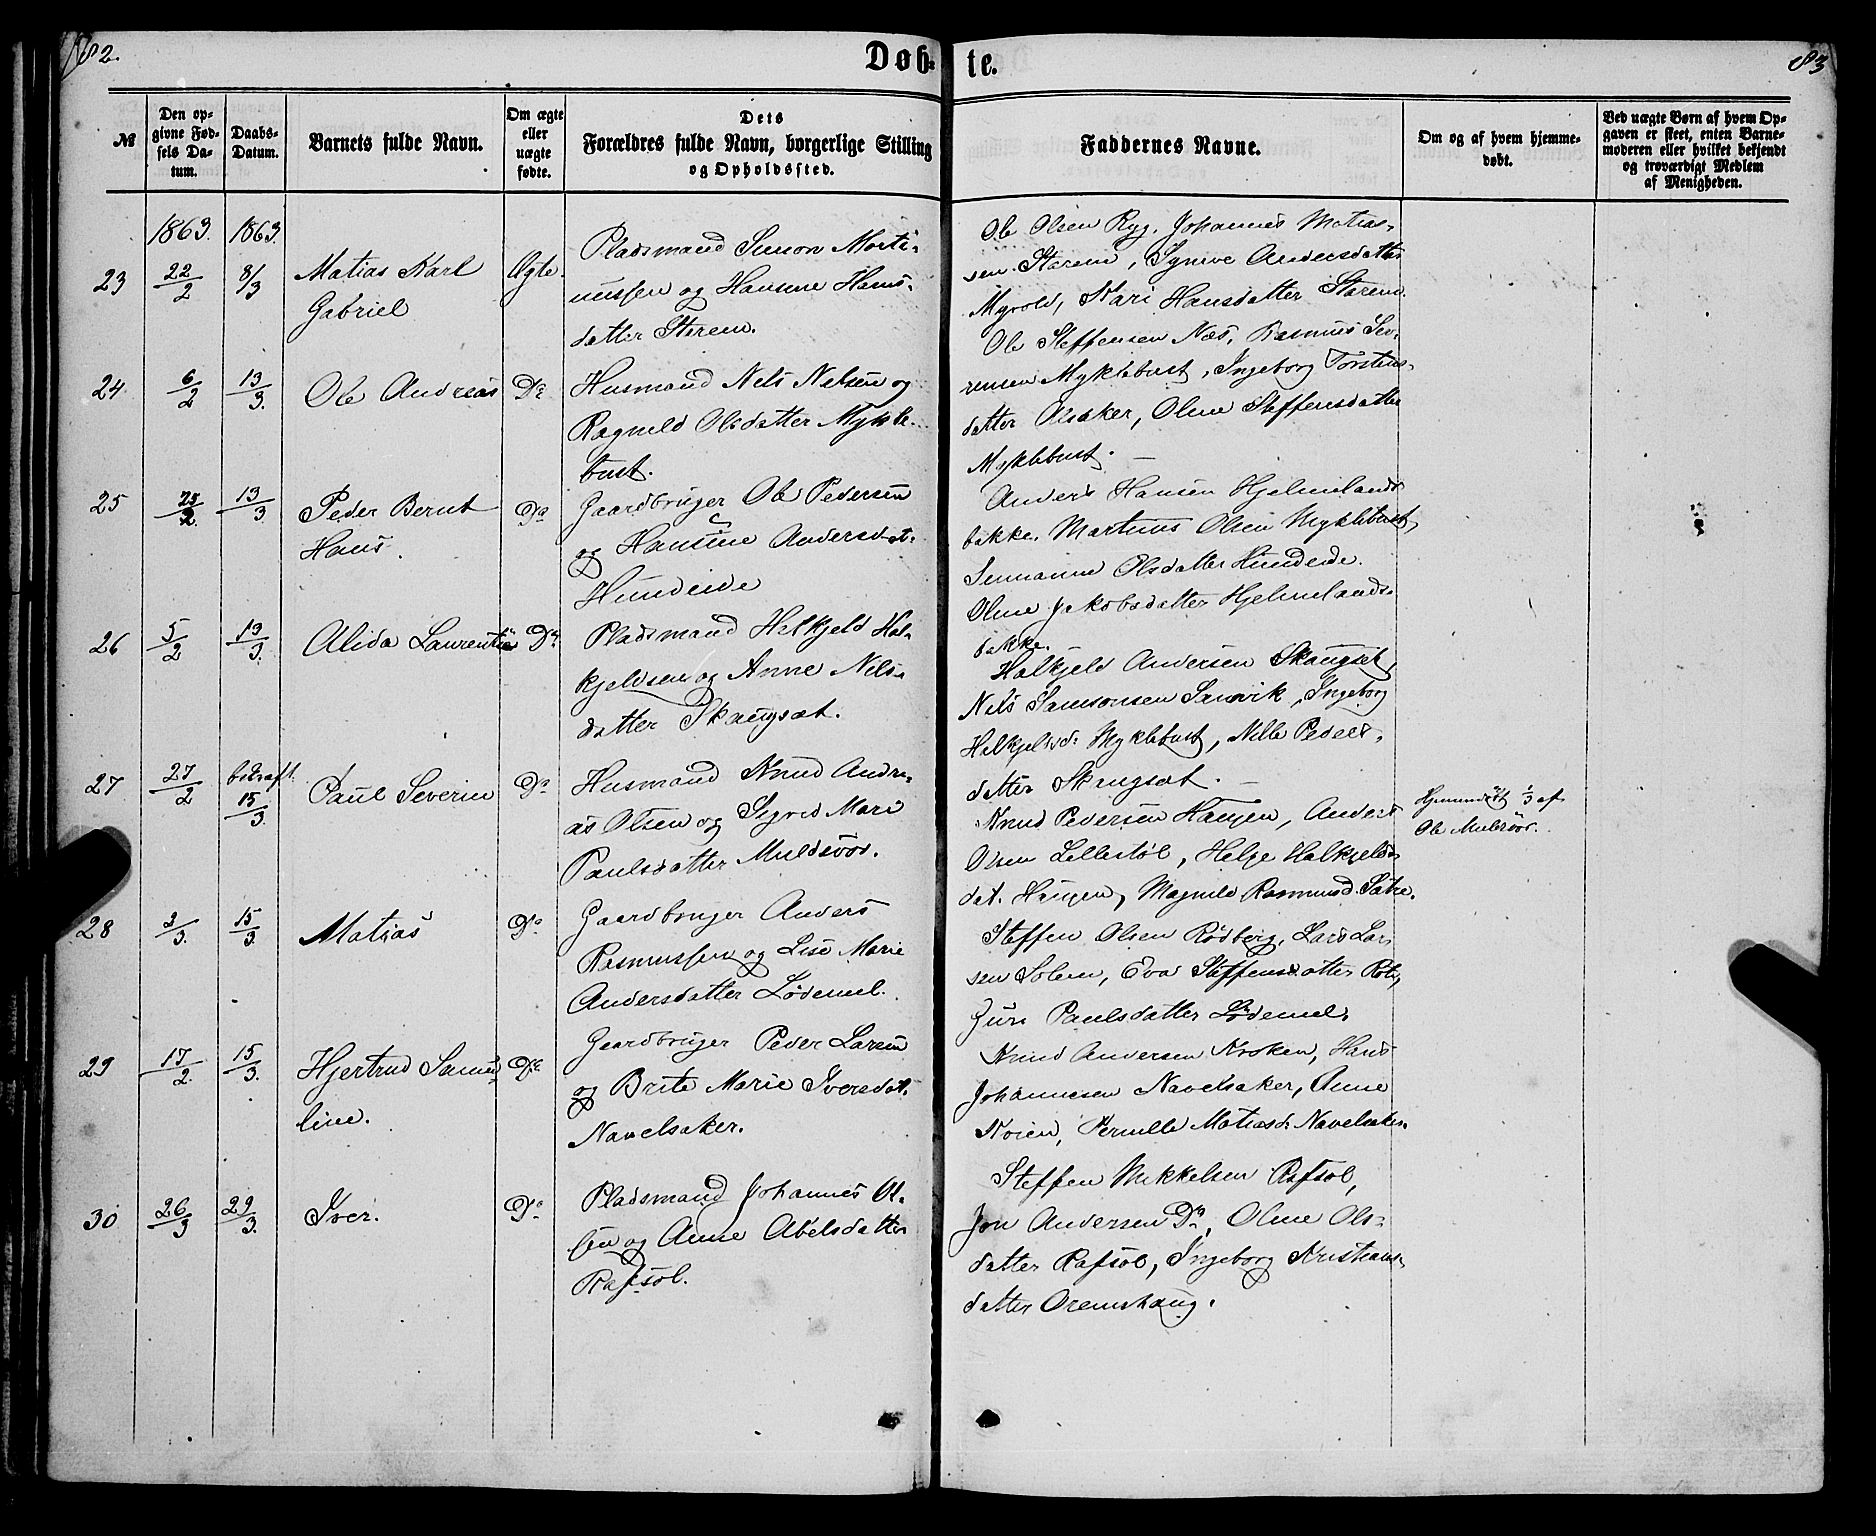 82.
Døb-
te.
83
№
Den op-
givne Fød-
sels Da-
tum.
Daabs-
Datum.
Barnets fulde Navn.
Om ægte
eller
uægte
fødte.
Dets
Forældres fulde Navn, borgerlige Stilling
og Opholdssted.
Faddernes Navne.
Om og af hvem hjemme-
døbt.
Ved uægte Børn af hvem Op-
gaven er skeet, enten Barne-
moderen eller hvilket bekjendt
og troværdigt Medlem
af Menigheden.
1863. 1863.
23 22/2 8/3 Matias Karl
Gabriel
Ægte.
Pladsmand Simon Morti-
nussen og Hansine Hans-
datter Starem.
Ole Olsen Ryg. Johannes Matias-
sen Starem, Synive Andersdatter
Myvold, Kari Hansdatter Starem.
24 6/2 13/3. Ole Andreas Do
Husmand Nils Nilsen og
Ragnild Olsdatter Mykle-
bust.
Ole Steffensen Næs, Rasmus Sev-
rensen Myklebust, Ingeborg Torstens-
datter Aisaker, Oline Steffensdatter
Myklebust. —
25 25/2. 13/3 Peder Bernt
Hans.
Do
Gaardbruger Ole Pedersen
og Hansine Andersdat.
Hundeide
Anders Hansen Hjelmelands-
bakke. Martinus Olsen Myklebust,
Olsdatter Hundeide.
Oline Jakobsdatter Hjelmelands-
bakke.
26 5/2 13/3. Alida Laurentine Do
Pladsmand Helkjeld Hal-
kjeldsen og Anne Nils-
datter Skaugsæt.
Halkjeld Andersen Skaugset,
Nils Samsonsen Sanvik, Ingeborg
Helkjeldsd. Myklebust, Nille Peders-
datter Skaugsæt. —
27 27/2 bekraft.
15/3.
Paul Severin Do
Husmand Knud Andre-
as Olsen og Sigrid Mari
Paulsdatter Muldsvor.
Knud Pedersen Haugen, Anders
Olsen Lillestøl, Helge Halkjelds-
dat. Haugen, Magnild Rasmusd. Sætre.
Hjemmedøbt 1/3 af
Ole Mulsvor.
28 3/3. 15/3. Matias Do
Gaardbruger Anders
Rasmussen og Lise Marie
Andersdatter Lødemel.
Steffen Olsen Rødberg, Lars Lar-
sen Solem, Eva Steffensdatter Roti,
Guri Paulsdatter Lødemel.
29 17/2. 15/3. Hjertrud Samue-
line.
Do
Gaardbruger Peder Larsen
og Brite Marie Iversdat.
Navelsaker.
Knud Andersen Kroken, Hans
Johannesen Navelsaker, Anne
Koien, Pernille Matiasd. Navelsaker.
30 26/3 29/3. Iver. Do
Pladsmand Johannes Ol-
sen og Anne Abelsdatter
Rafsol.
Steffen Mikkelsen Rafsol,
Jon Andersen Do, Oline Ols-
datter Rafsol, Ingeborg Kristians-
datter Oremshaug.